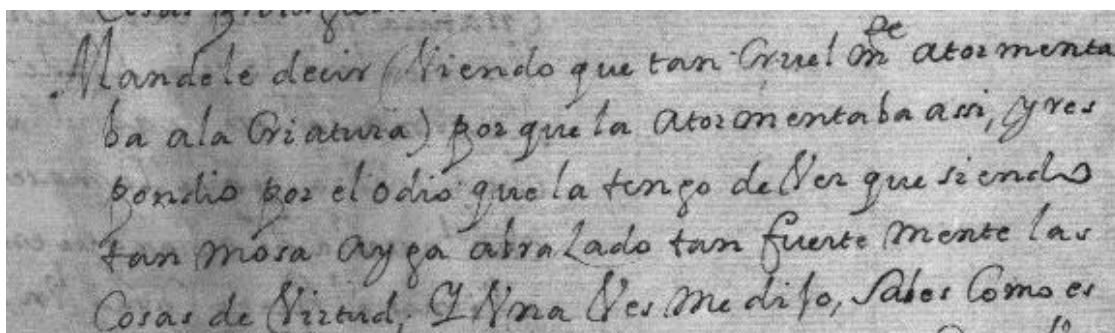 Cosas
Mandele decir (Viendo que tan Cruel mte atormenta
ba ala Criatura) por que la atormentaba assi, y res
pondio por el odio que la tengo de Ver que siendo
tan mosa ayga abraZado tan fuerte mente las
Cosas de Virtud, Y Vna Ves me dijo, Sabes Como es